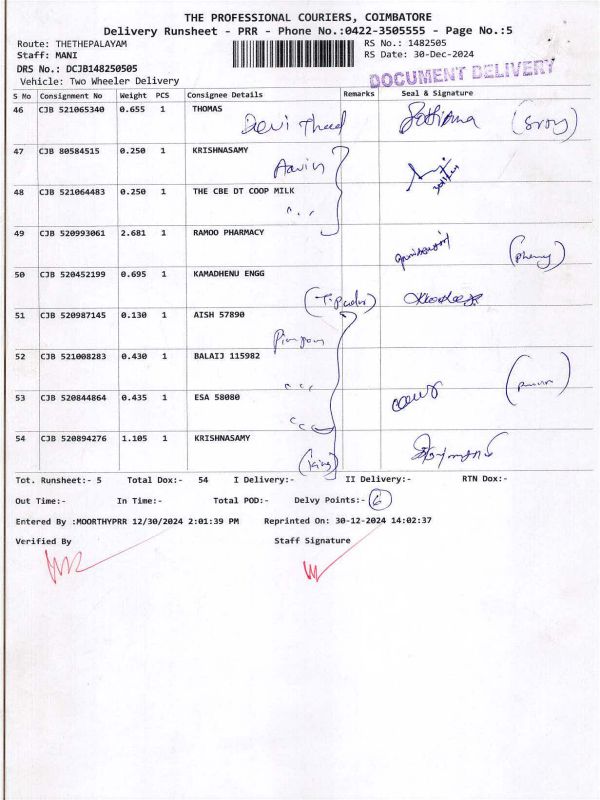 THE PROFESSIONAL COURIERS, COIMBATORE
Delivery Runsheet - PRR - Phone No.:0422-3505555 - Page No.:5
Route: THETHEPALAYAM RS No.: 1482505
Staff: MANI RS Date: 30-Dec-2024
DRS No.: DCJB148250505
Vehicle: Two Wheeler Delivery
DOCUMENT DELIVERY
S No Consignment No Weight PCS Consignee Details Remarks Seal & Signature
46 CJB 521065340 0.655 1 THOMAS
Devi
47 CJB 80584515 0.250 1 KRISHNASAMY
Aavin
48 CJB 521064483 0.250 1 THE CBE DT COOP MILK
49 CJB 520993061 2.681 1 RAMOO PHARMACY
50 CJB 520452199 0.695 1 KAMADHENU ENGG
51 CJB 520987145 0.130 1 AISH 57890
52 CJB 521008283 0.430 1 BALAIJ 115982
53 CJB 520844864 0.435 1 ESA 58080
54 CJB 520894276 1.105 1 KRISHNASAMY
(King)
Tot. Runsheet:- 5 Total Dox:- 54 I Delivery:- II Delivery:- RTN Dox:-
Out Time:- In Time:- Total POD:- Delvy Points:- 6
Entered By :MOORTHYPRR 12/30/2024 2:01:39 PM Reprinted On: 30-12-2024 14:02:37
Verified By Staff Signature